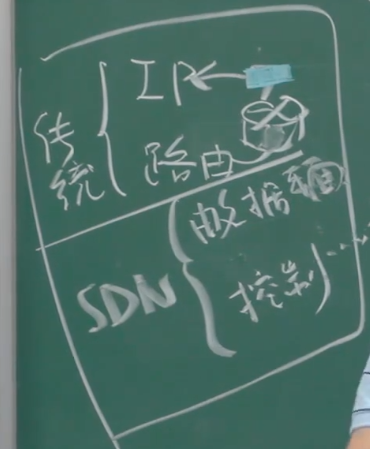 传统
IP
路由
SDN
数据面
控制